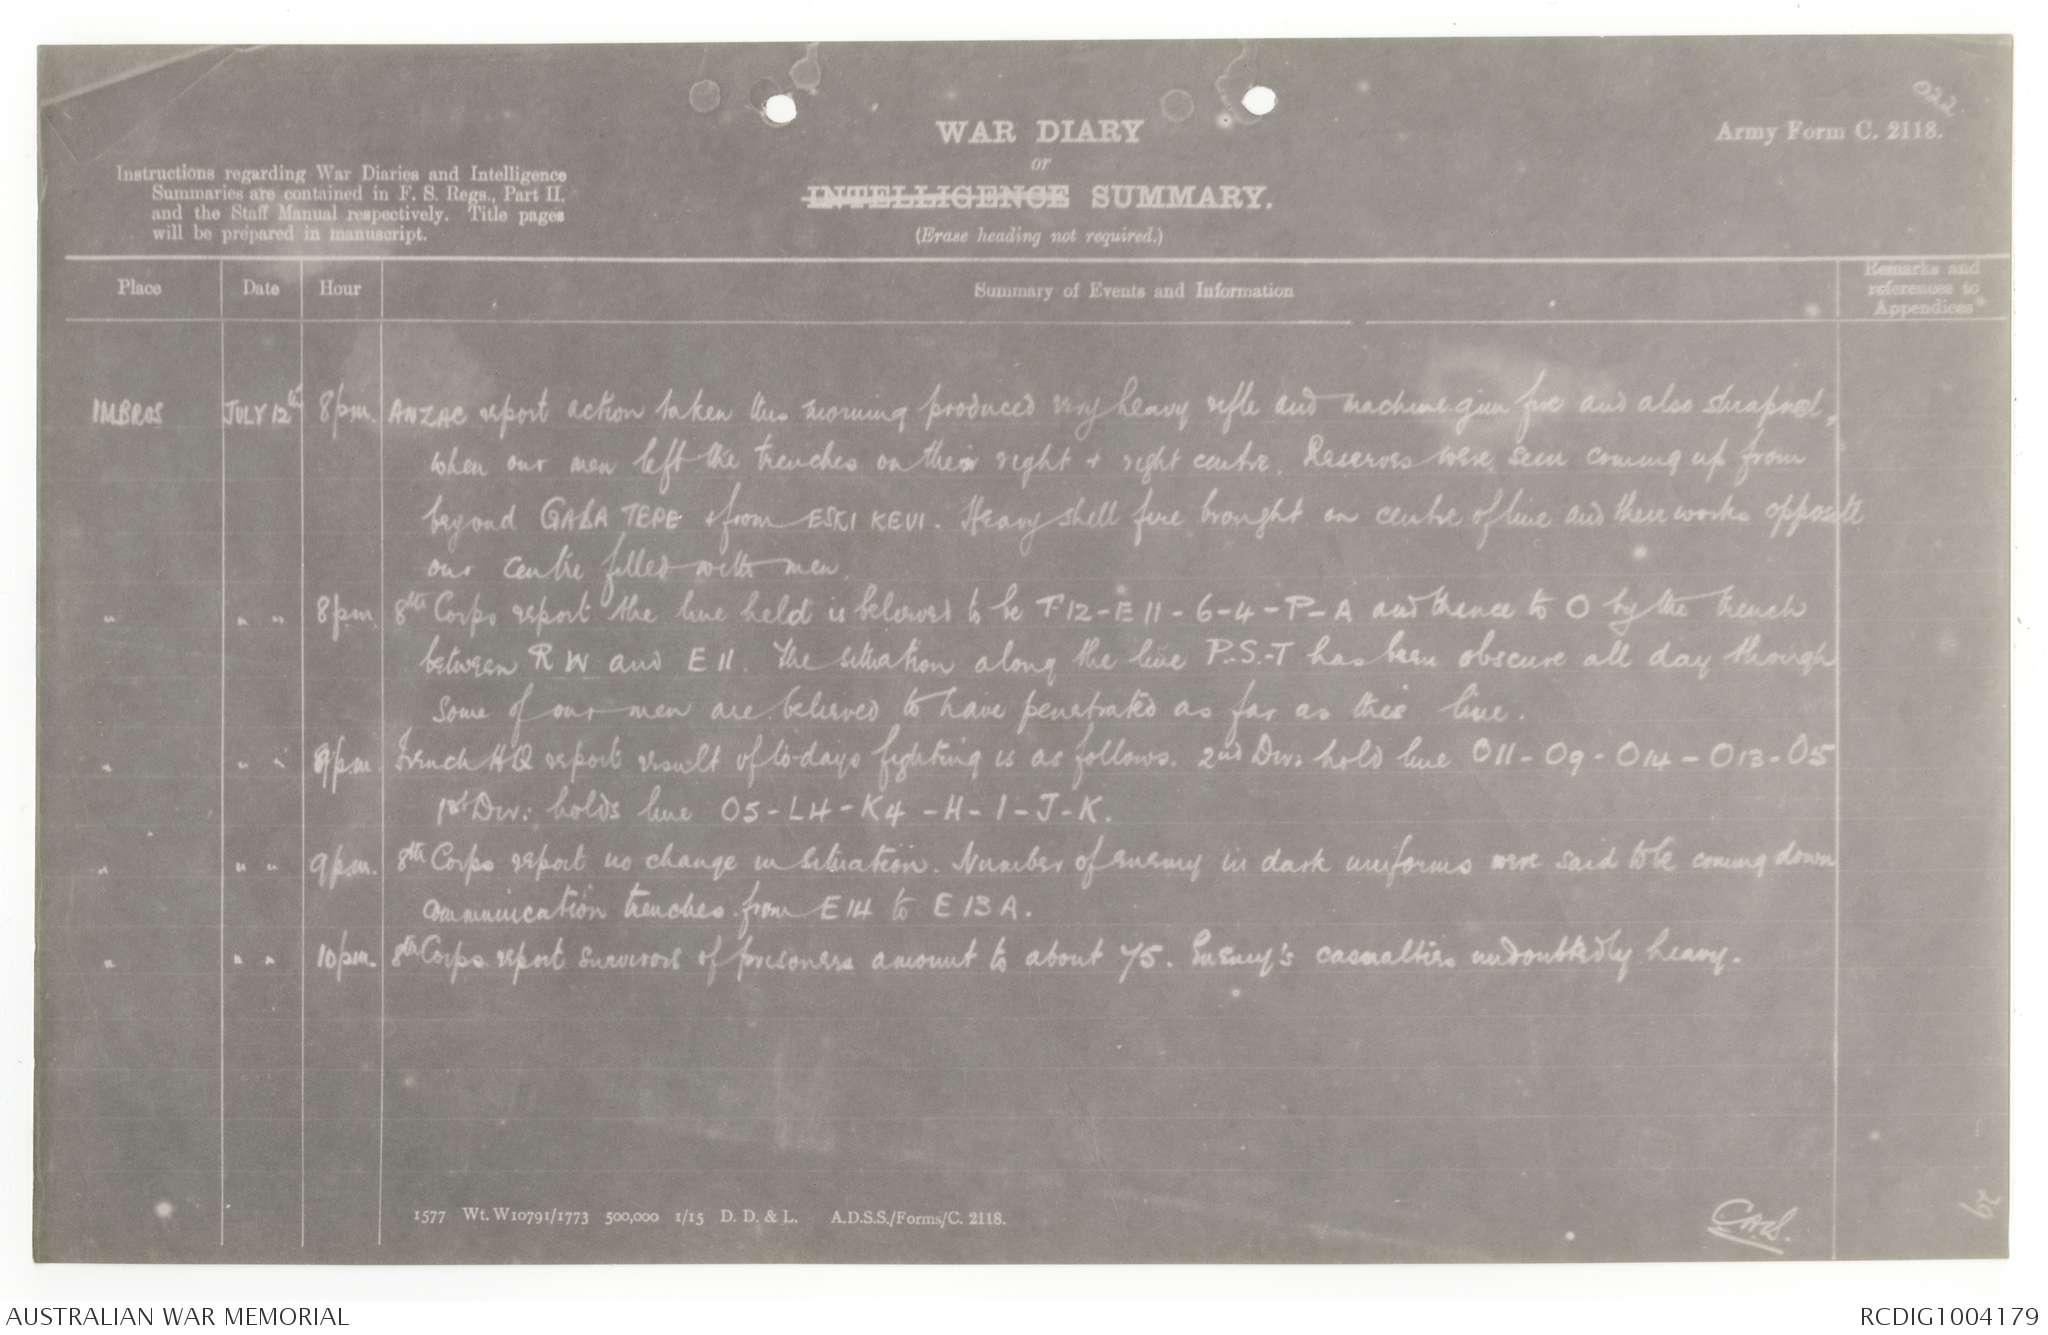 022
Army Form C. 2118.
WAR DIARY
or
INTELLIGENCE SUMMARY.
(Erase heading not required.)
Instructions regarding War Diaries and Intelligence
Summaries are contained in F. S. Regs., Part II.
and the Staff Manual respectively. Title pages
will be prepared in manuscript.
Place Date Hour Summary of Events and Information Remarks and references to Appendices*
IMBROS JULY 12th 8pm. ANZAC report action taken this morning produced very heavy rifle and machine gun fire and also shrapnel,
when our men left the trenches on their right + right centre. Reserves were seen coming up from
beyond GABA TEPE + from ESKI KEUI. Heavy shell fire brought on centre of line and then works opposite
our centre filled with men.
" " " 8pm. 8th Corps report the line held is believed to be F12-E11-6-4-P-A and thence to O by the trench
between R W and E 11. The situation along the line P.-S.-T has been obscure all day though
some of our men are believed to have penetrated as far as this line.
" " " 9pm. French HQ report result of to-days fighting is as follows. 2nd Div: hold line O11-O9-O14-O13-O5
1st Div: holds line O5-L4-K4-H-I-J-K.
" " " 9pm. 8th Corps report no change in situation. Number of enemy in dark uniforms were said to be coming down
communication trenches from E14 to E13A.
" " " 10pm. 8th Corps report survivors of prisoners amount to about 75. Enemy's casualties undoubtedly heavy.
1577 Wt. W10791/1773 500,000 1/15 D. D. & L. A.D.S.S./Forms/C. 2118.
AUSTRALIAN WAR MEMORIAL
RCDIG1004179